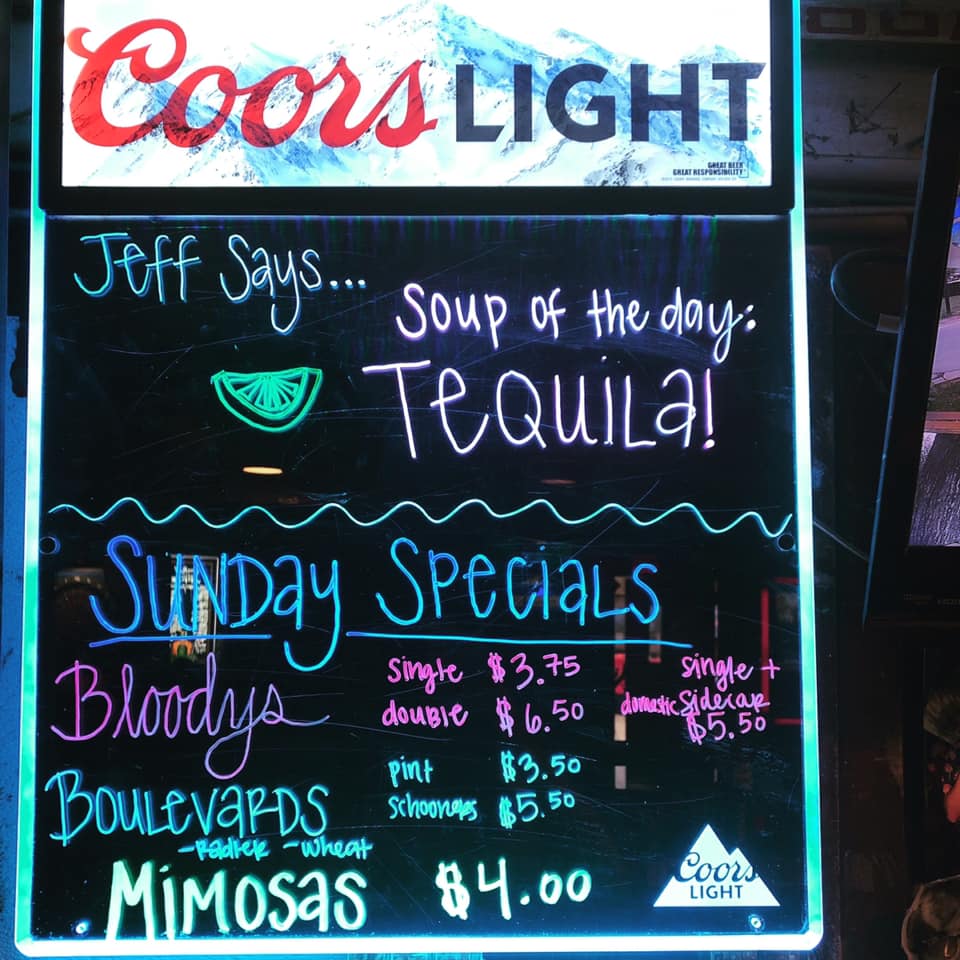 Coors LIGHT
GREAT BEER
GREAT RESPONSIBILITY
Jeff Says...
Soup of the day:
TEQUILa!
SUNDay SPECiaLS
Bloodys
single $3.75
double $6.50
single +
domastic Sidecar
$5.50
BOULEVaRDS
pint $3.50
schooners $5.50
-Radler -wheat
MiMOSas $4.00
Coors
LIGHT